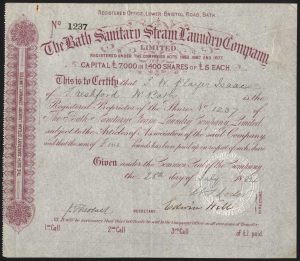 REGISTERED OFFICE, LOWER BRISTOL ROAD, BATH.
No. 1237
The Bath Sanitary Steam Laundry Company
LIMITED
REGISTERED UNDER THE COMPANIES ACTS 1862, 1867 AND 1877.
CAPITAL £7,000 IN 1,400 SHARES OF £5 EACH.
This is to Certify that J. H. Player Isaac
of Freshford Nr Bath is the
Registered Proprietor of the Share No 1237 of
The Bath Sanitary Steam Laundry Company Limited,
subject to the Articles of Association of the said Company
and that the sum of Five Pounds has been paid up in respect of such share
Given under the Common Seal of the Company
the 28th day of July
SECRETARY
Edwin Hill
1st Call 2nd Call 3rd Call of £1 paid.